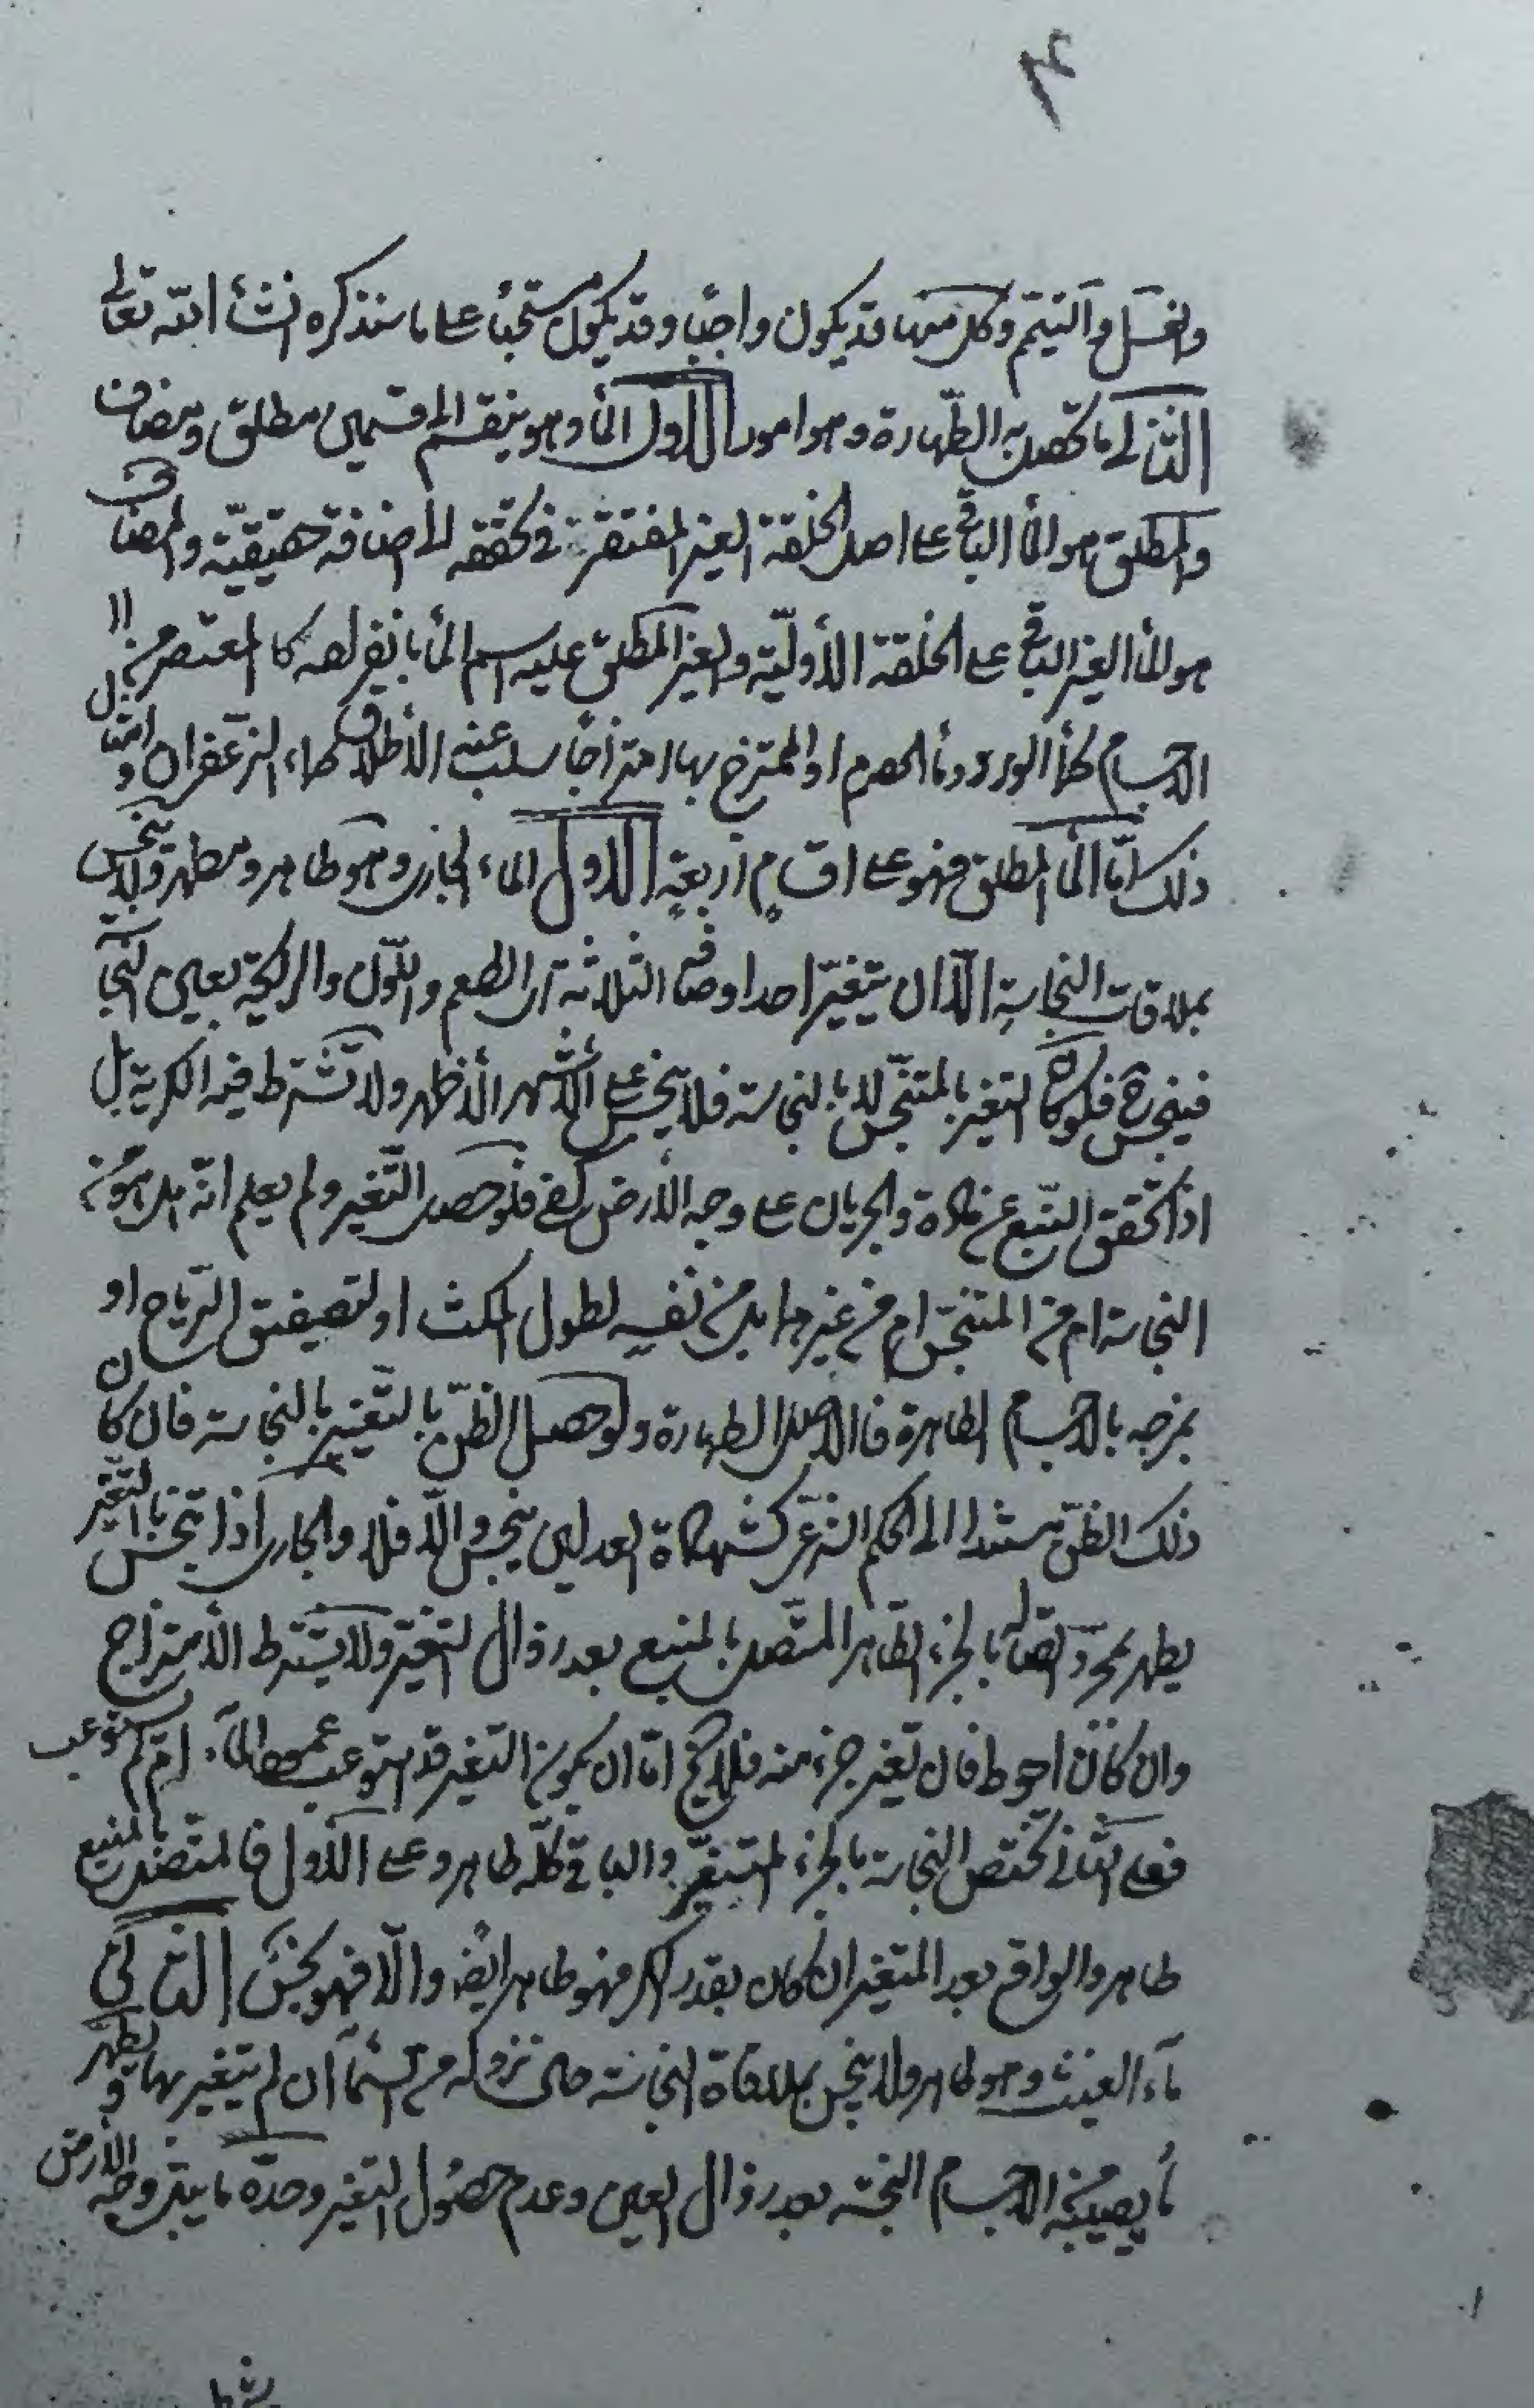 والغسل والتيمم وكل منها قد يكون واجبا وقد يكون مستحبا على ما سنذكره انشأ الله تعالى
الثانى ما تحصل به الطهارة وهو امور الاول المأ وهو ينقسم الى قسمين مطلق ومضاف
والمطلق هو المأ الباقى على اصل الخلقة الغير المفتقر فى تحققه الى الأضافة حقيقية والمضاف
هو المأ الغير الباقى على الخلقة الأولية والغير المطلق عليه اسم المأ بانفراده كا المعتصر من
الاجسام كمأ الورد ومأ الحصرم او الممتزج بها امتزاجا سلب عنه الأطلاق كماء الزعفران وامثال
ذلك امّا المأ المطلق فهو على اقسام اربعة الاول الماء الجارى وهو طاهر ومطهر ولا ينجس
بملاقات النجاسة الّا ان يتغير احد اوصافه الثلاثة اى الطعم واللون والرايحة بعين النجاسة
فينجس ح فلو كان التغير بالمتنجس لا بالنجاسة فلا ينجس على الأشهر الأظهر ولا تشترط فيه الكرية بل
اذا تحقق النبع عن مادة والجريان على وجه الأرض كفى فلو حصل التغير ولم يعلم انه هل هو من
النجاسة ام من المتنجس ام من غيرهما بل من نفسه لطول المكث او لتصفيق الرياح او
بمزجه بالاجسام الطاهرة فالاصل الطهارة ولو حصل الظن بالتغير بالنجاسة فان كان
ذلك الظن مستندا الى الحكم الشرعى كشهادة العدلين ينجس والّا فلا والجارى اذا تنجس بالتغير
يطهر بمجرد اتصاله بالجزء الطاهر المتصل بالمنبع بعد زوال التغير ولا يشترط الأمتزاج
وان كان احوط فان تغير جزء منه فلا يخ امّا ان يكون التغير قد استوعب عمود المآء ام لم يستوعب
فعلى الثانى تختص النجاسة بالجزء المتغير والباقى كله طاهر وعلى الأول فالمتصل بالمنبع
طاهر والواقع بعد المتغير ان كان بقدر الكر فهو طاهر ايضا والّا فهو نجس الثانى
مآء الغيث وهو طاهر ولا ينجس بملاقاة النجاسة حال نزوله من السمآء ان لم يتغير بها ويطهر
ما يصيبه من الاجسام النجسة بعد زوال العين وعدم حصول التغير وحدّه ما يبل وجه الأرض